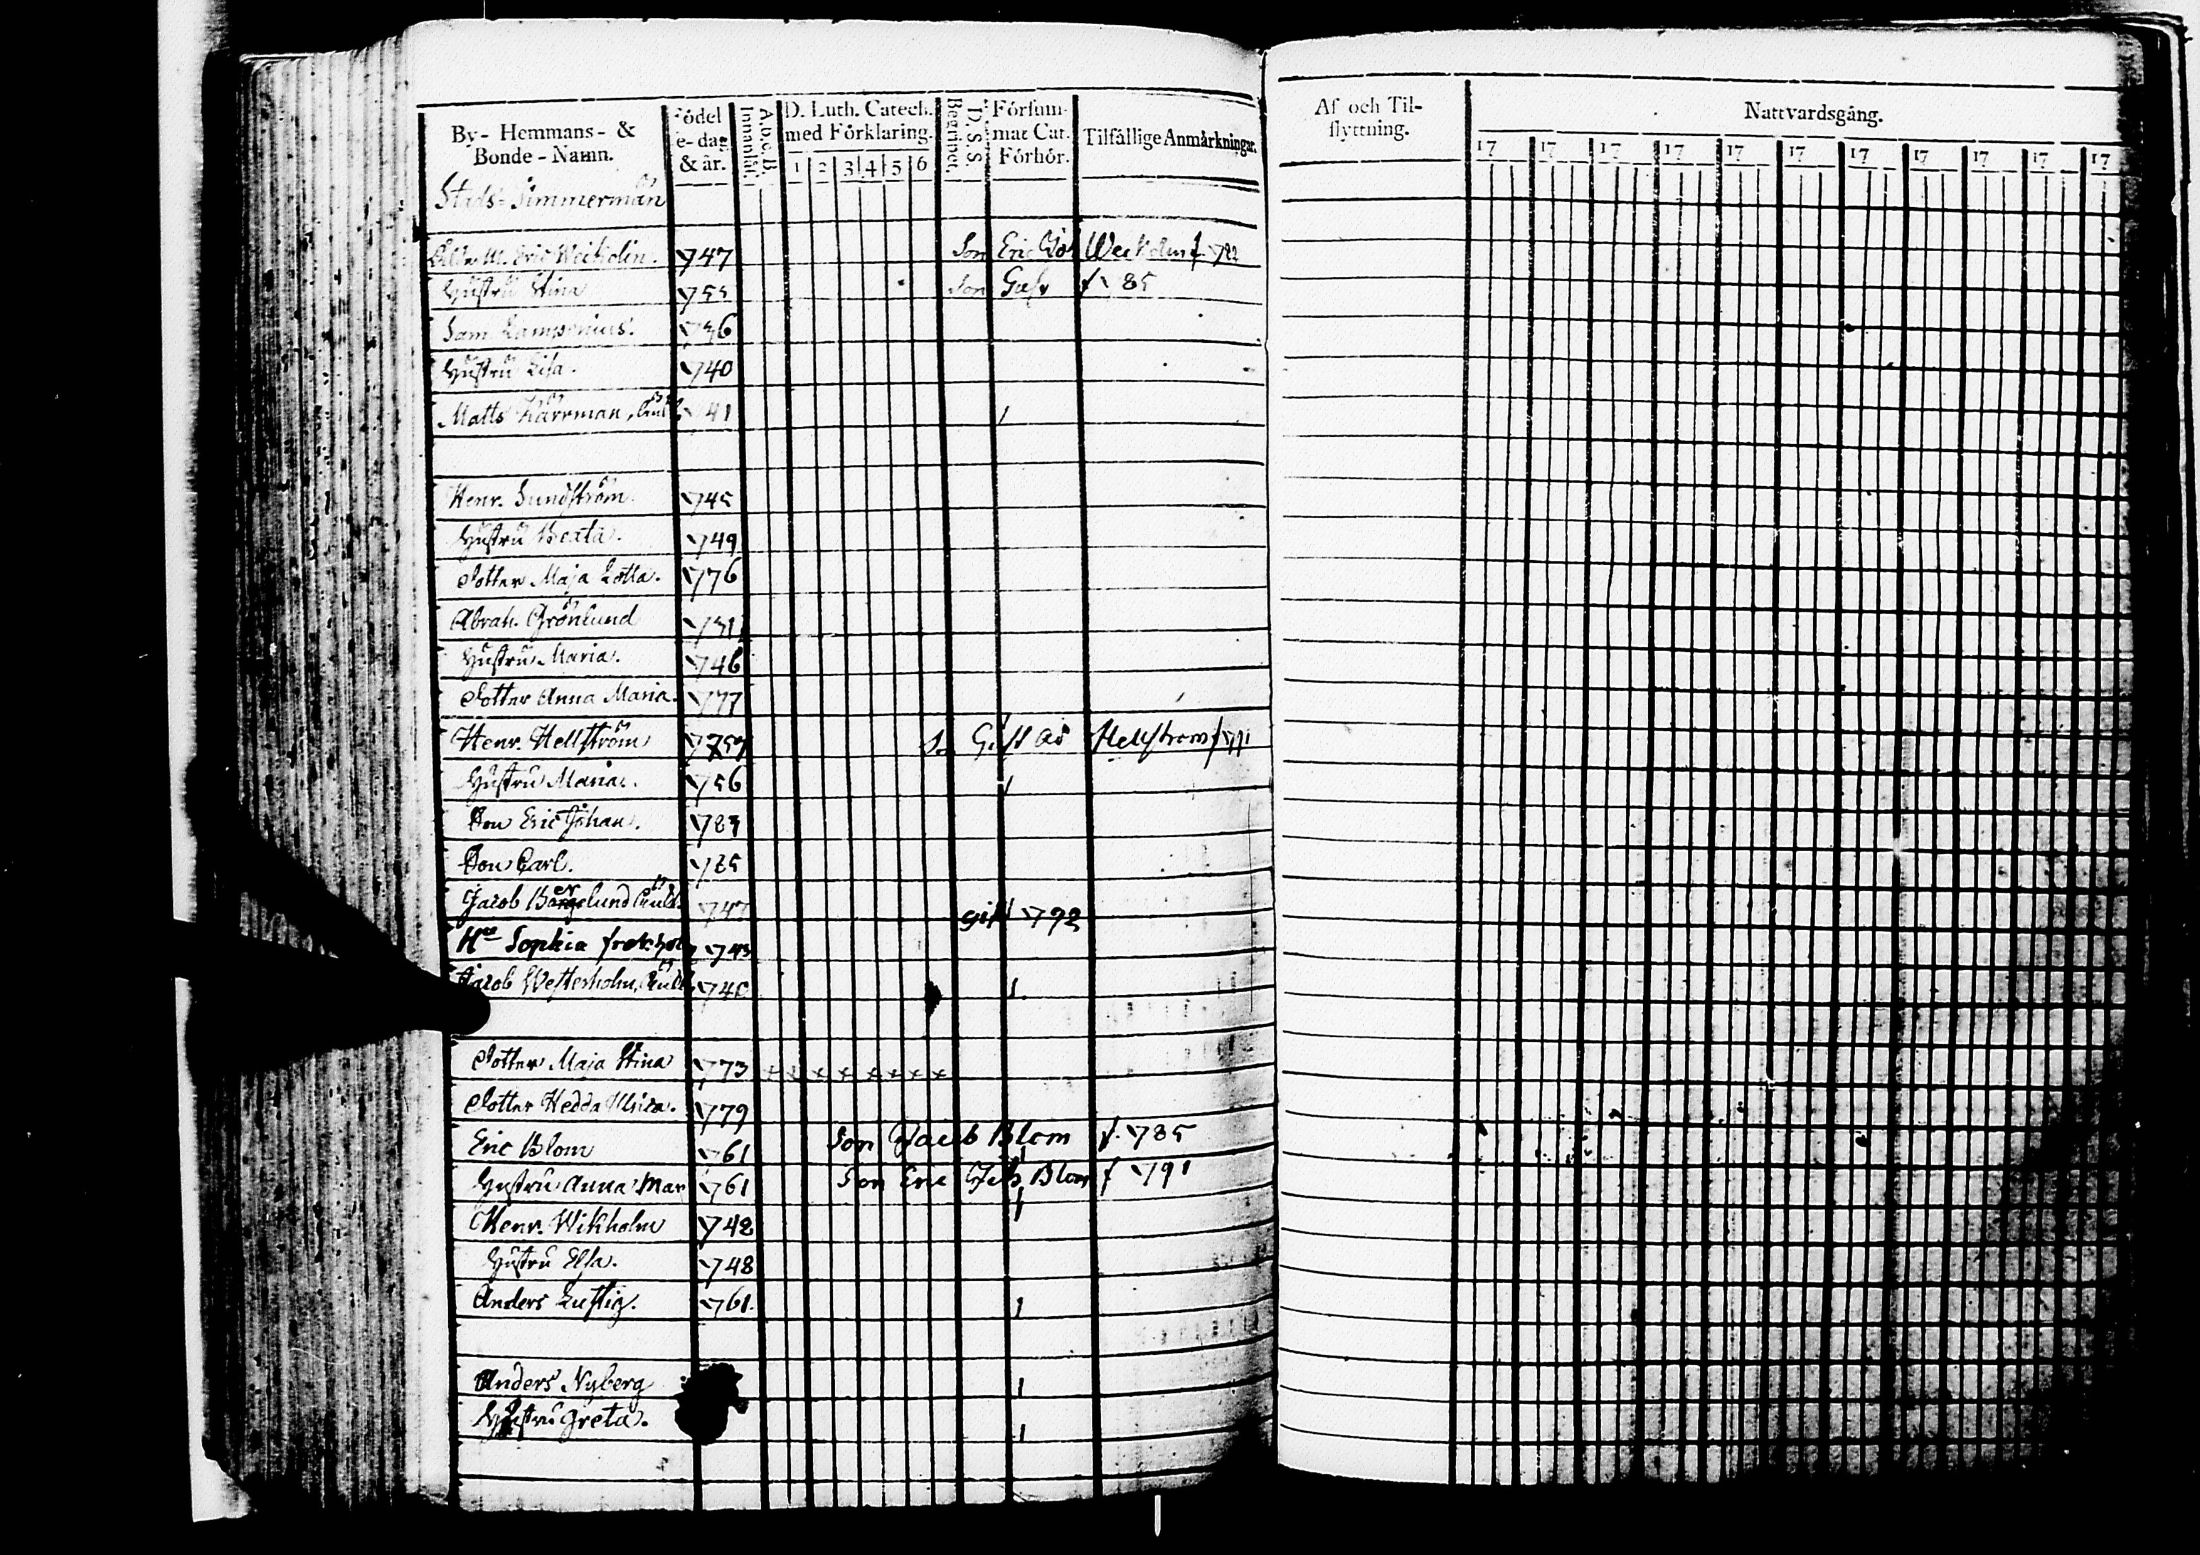 By- Hemmans- & Bonde-Namn. Födelse-dag & år. A.b.c.B. Innanläs. D. Luth. Catech. med Förklaring. 1 2 3 4 5 6 D. S. S. Begripet. Försummat Cat. Förhör. Tilfällige Anmärkningar. Af och Til-flyttning. Nattvardsgång.
17 17 17 17 17 17 17 17 17 17 17
Stads-Timmermän
Eric 747 Son Eric Joh 782
Hustru Stina 755 Son f 85
Sam 736
Hustru Lisa. 740
Matts Kärrman, 741
Henr. Sundström. 745
Hustru Beata. 749
Dotter Maja Lotta. 776
Abrah. Grönlund 731
Hustru Maria. 746
Dotter Anna Maria. 777
Henr. Hellström 757 Hellström f 791
Hustru Maria. 756
Son Eric Johan. 783
Son Carl. 785
Jacob Bergelund 747 gift 792
Hu Sophia 743
Jacob Westerholm, 740
Dotter Maja Stina 773 + + + + + + + +
Dotter Hedda Ulrica. 779
Eric Blom 761 Son Jacob Blom f. 785
Hustru Anna Mar 761 Son Eric Joh Blom f 791
Henr. Wikholm 742
Hustru Elsa. 748
Anders Lustig. 761.
Anders Nyberg
Hustru Greta.